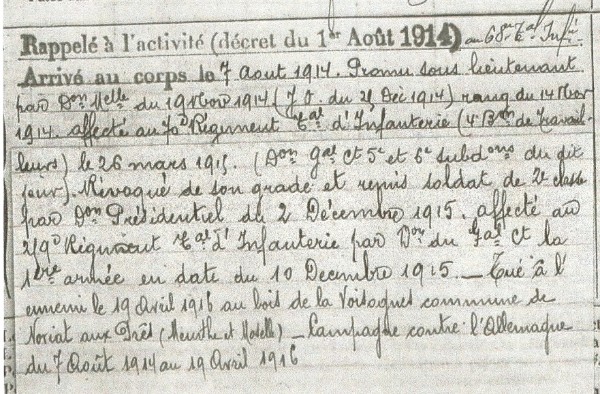 Rappelé à l'activité (décret du 1er Août 1914) au 68e Rt Tal Infie
Arrivé au corps le 7 Aout 1914. Promu sous lieutenant
par Don Melle du 19 Nov 1914 (J.O. du 2 Déc 1914) rang du 14 Nov
1914. affecté au 70e Régiment Tal d'Infanterie (4e Bon de Travail-
leurs) le 26 mars 1915. (Don Gal Ct 5e et 6e subdons du dit
jour). Revoqué de son grade et remis soldat de 2e classe
par Don Présidentiel du 2 Décembre 1915. affecté au
219e Régiment Tal d'Infanterie par Don du Gal Ct la
1ère armée en date du 10 Decembre 1915 _ Tué à l'
ennemi le 19 Avril 1916 au bois de la Voisogne commune de
Noriat aux Prês (Meurthe et Moselle) _ Campagne contre l'Allemagne
du 7 Août 1914 au 19 Avril 1916